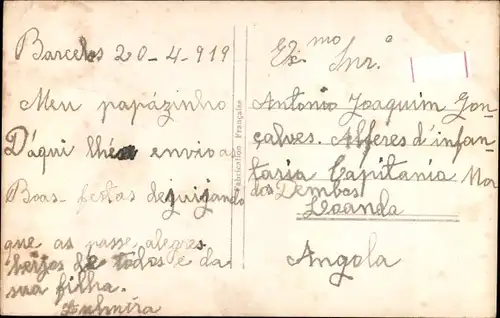 Barcelos 20-4-919
Meu papázinho
D'aqui lhe envio as
Boas-festas desejando
que as passe alegres
beijos de todos e da
sua filha.
Fabrication Française
Ex.mo Snr.
Antonio Joaquim Gon-
çalves. Alferes d'infan-
taria Capitania Mo
dos Dembos
Loanda
Angola